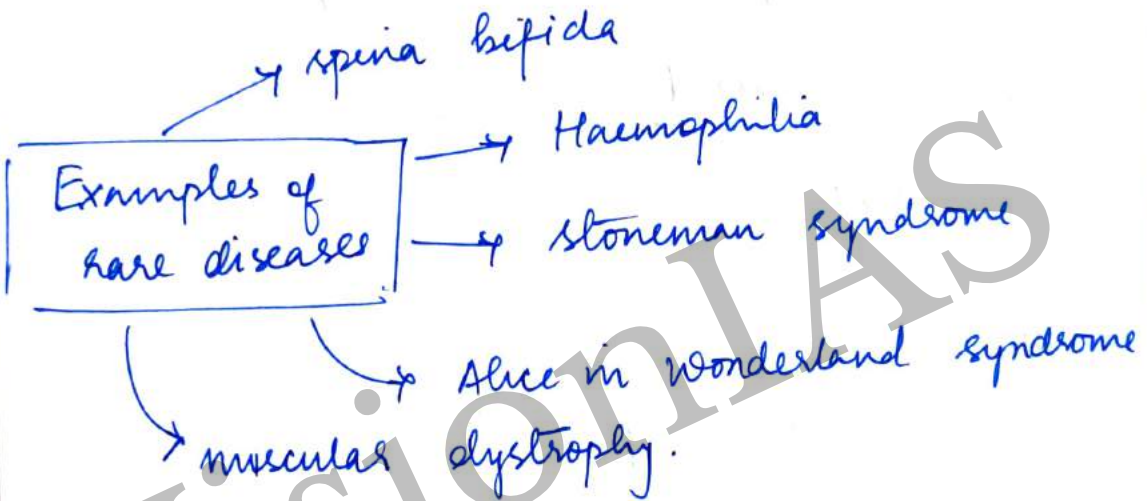 spina bifida
Haemophilia
Examples of
rare diseases
stoneman syndrome
Alice in wonderland syndrome
muscular dystrophy.
VisionIAS